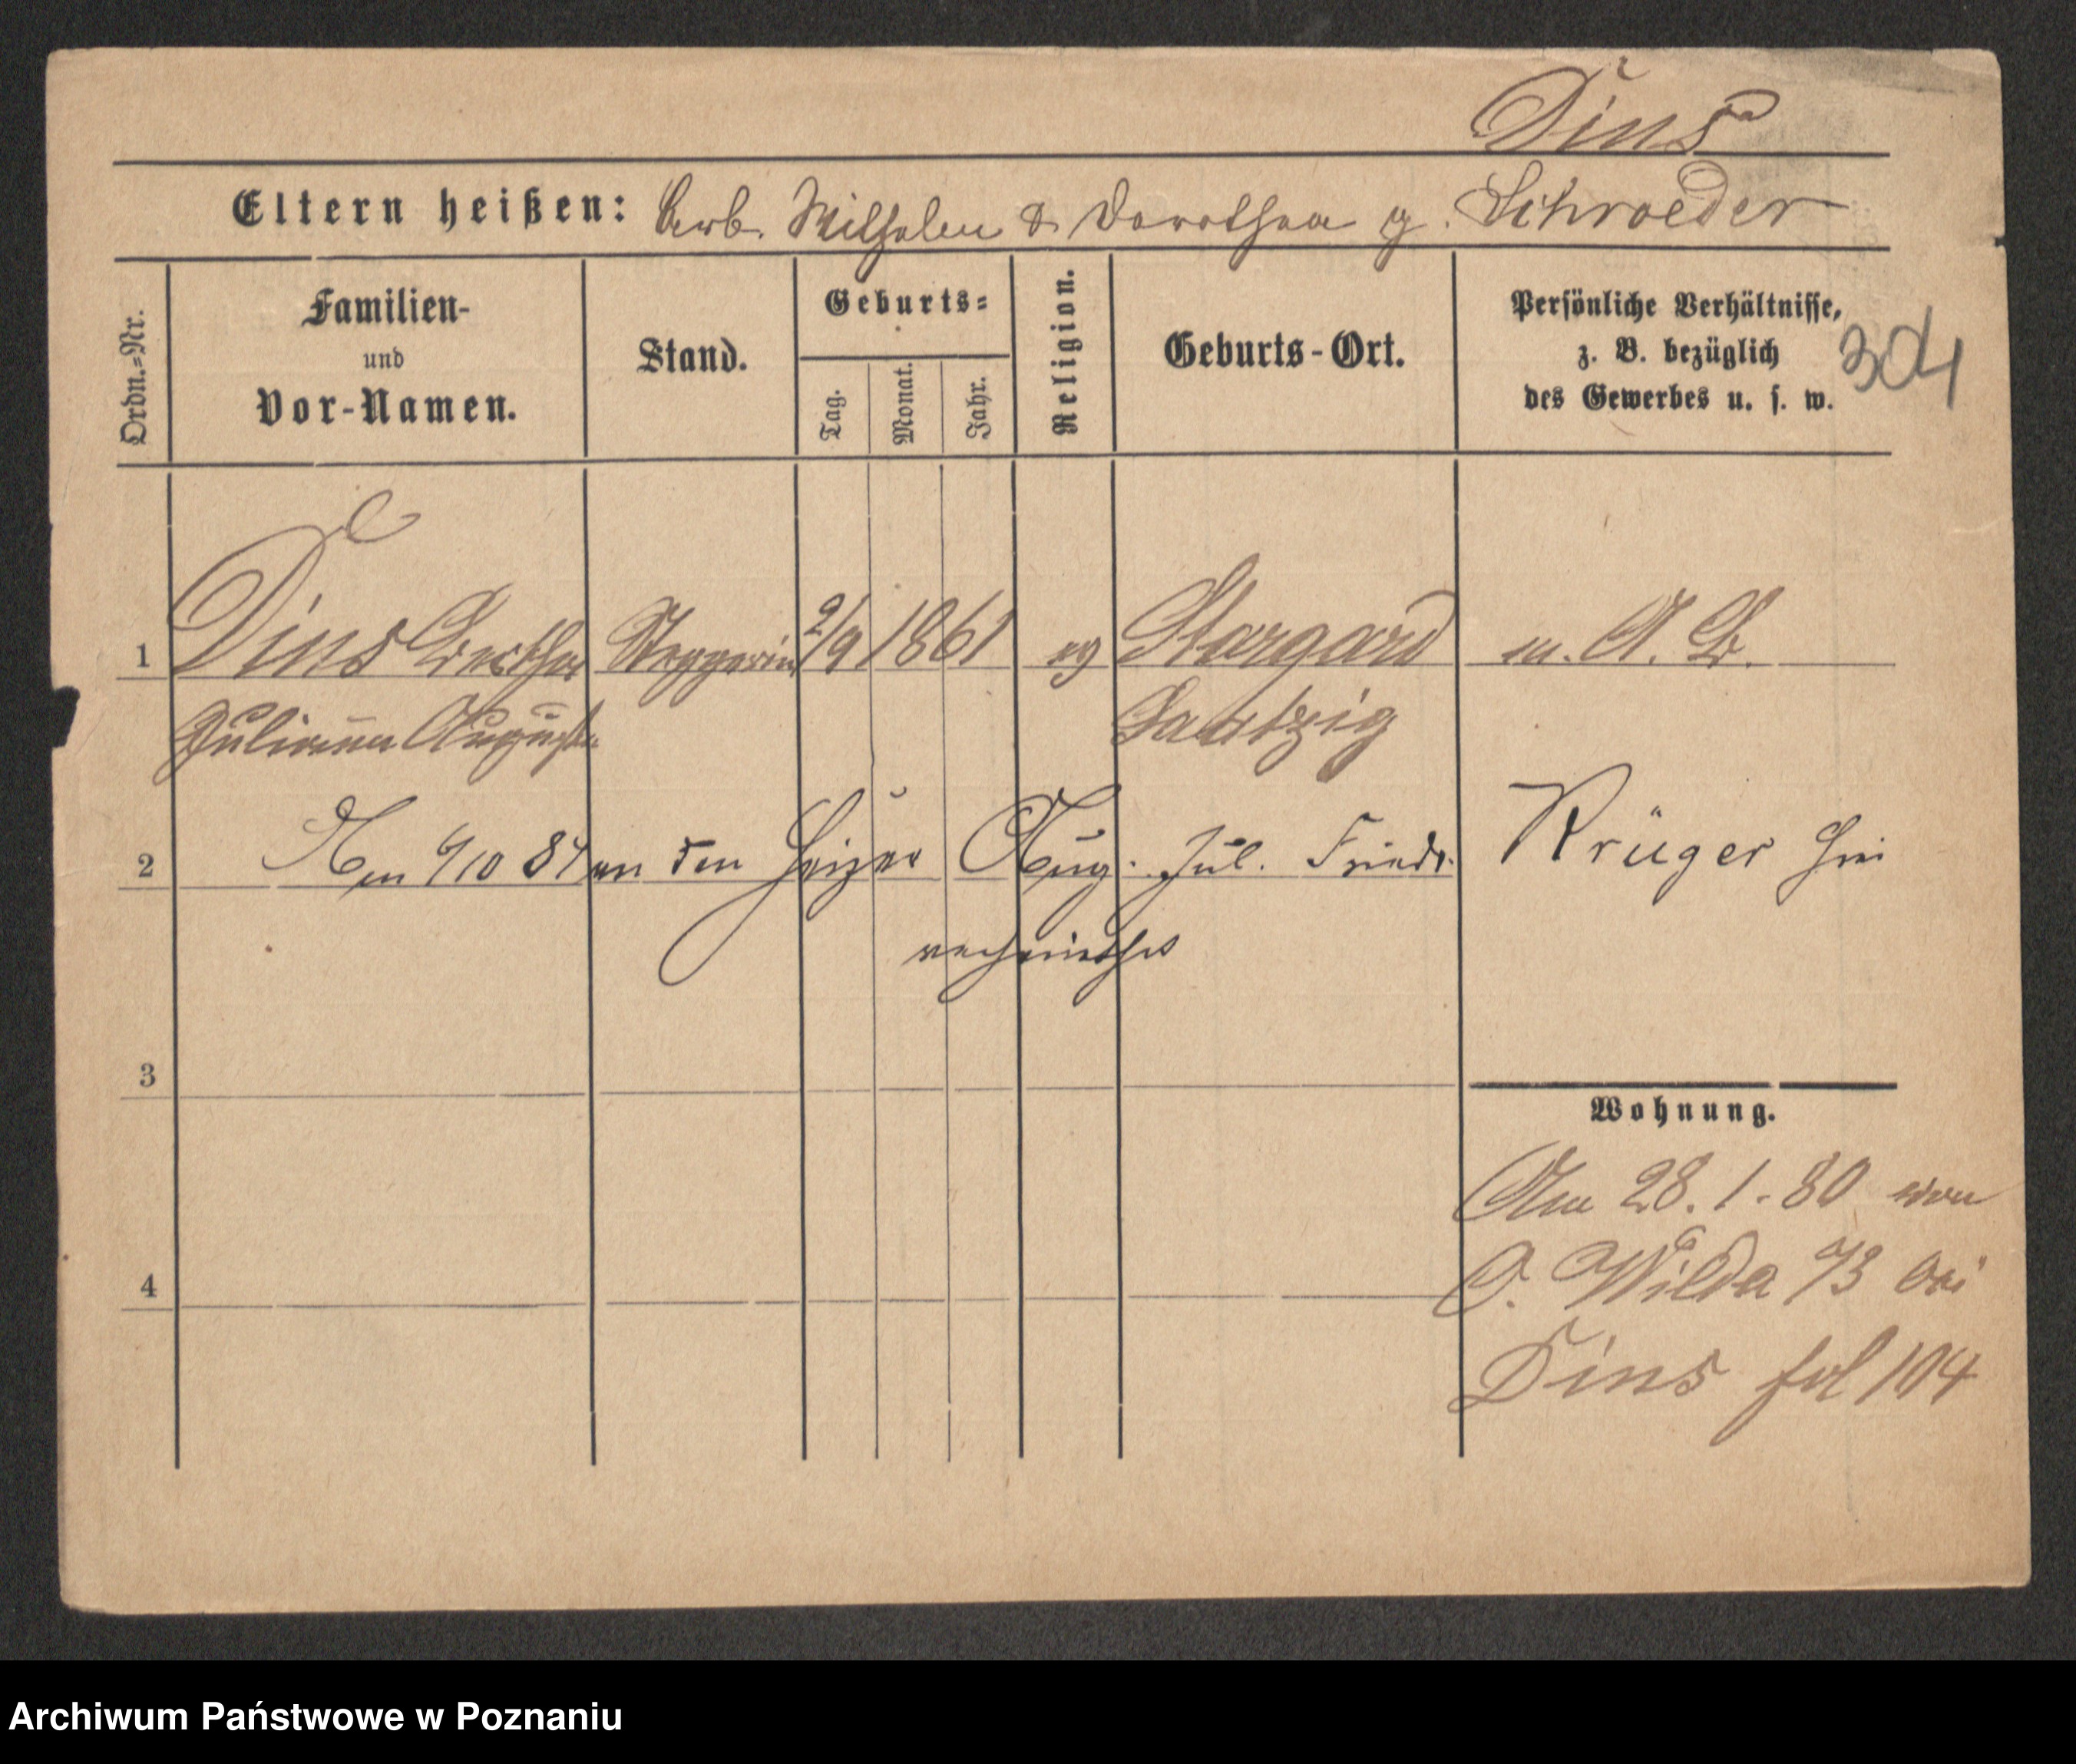 Dins
Eltern heißen: Arb. Wilhelm & Dorothea g. Schroeder
Ordn.=Nr.
Familien-
und
Vor-Namen.
Stand.
Geburts=
Tag.
Monat.
Jahr.
Religion.
Geburts-Ort.
Persönliche Verhältnisse,
z. B. bezüglich
des Gewerbes u. s. w.
304
1 Dins Bertha Stepperin 2/9 1861 ev Stargard m. A. B.
Juliana Auguste Saatzig
2 Am 4/10 84 an den Heizer Aug. Jul. Friedr. Krüger hier
verheirathet
3
Wohnung.
Am 28. 1. 80 von
O. Wilda 73 bei
4
Dins fol 104
Archiwum Państwowe w Poznaniu